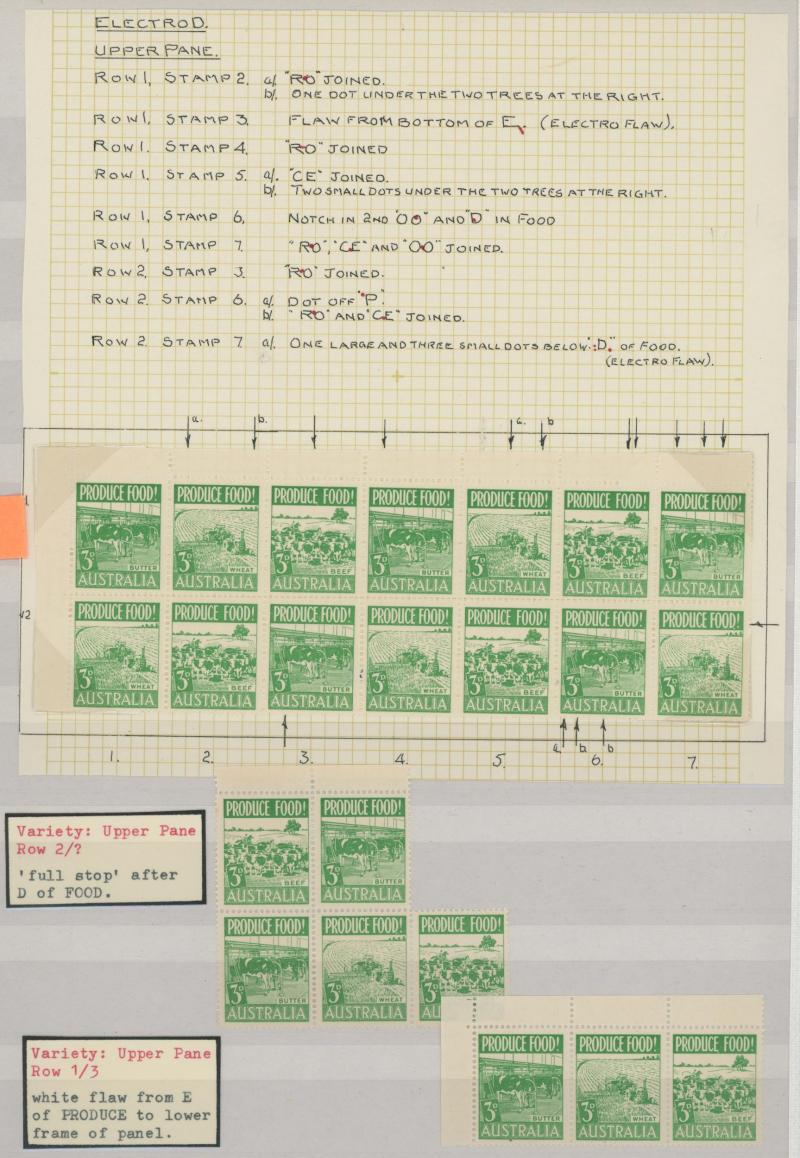 ELECTRO D.
UPPER PANE.
ROW 1, STAMP 2. a/. "RO" JOINED.
b/. ONE DOT UNDER THE TWO TREES AT THE RIGHT.
ROW 1, STAMP 3. FLAW FROM BOTTOM OF E, (ELECTRO FLAW).
ROW 1. STAMP 4. "RO" JOINED
ROW 1, STAMP 5. a/. "CE" JOINED.
b/. TWO SMALL DOTS UNDER THE TWO TREES AT THE RIGHT.
ROW 1, STAMP 6, NOTCH IN 2ND "OO" AND "D" IN FOOD
ROW 1, STAMP 7. "RO", "CE" AND "OO" JOINED.
ROW 2, STAMP 3. "RO" JOINED.
ROW 2. STAMP 6. a/. DOT OFF "P".
b/. "RO" AND "CE" JOINED.
ROW 2. STAMP 7 a/. ONE LARGE AND THREE SMALL DOTS BELOW "D." OF FOOD.
(ELECTRO FLAW).
a. b. a. b
PRODUCE FOOD! PRODUCE FOOD! PRODUCE FOOD! PRODUCE FOOD! PRODUCE FOOD! PRODUCE FOOD! PRODUCE FOOD!
3D BUTTER 3D WHEAT 3D BEEF 3D BUTTER 3D WHEAT 3D BEEF 3D BUTTER
AUSTRALIA AUSTRALIA AUSTRALIA AUSTRALIA AUSTRALIA AUSTRALIA AUSTRALIA
2
PRODUCE FOOD! PRODUCE FOOD! PRODUCE FOOD! PRODUCE FOOD! PRODUCE FOOD! PRODUCE FOOD! PRODUCE FOOD!
3D WHEAT 3D BEEF 3D BUTTER 3D WHEAT 3D BEEF 3D BUTTER 3D WHEAT
AUSTRALIA AUSTRALIA AUSTRALIA AUSTRALIA AUSTRALIA AUSTRALIA AUSTRALIA
a. b b
1. 2. 3. 4. 5. 6. 7.
Variety: Upper Pane
Row 2/?
'full stop' after
D of FOOD.
PRODUCE FOOD! PRODUCE FOOD!
3D BEEF 3D BUTTER
AUSTRALIA AUSTRALIA
PRODUCE FOOD! PRODUCE FOOD! PRODUCE FOOD!
3D BUTTER 3D WHEAT 3D
AUSTRALIA AUSTRALIA
Variety: Upper Pane
Row 1/3
white flaw from E
of PRODUCE to lower
frame of panel.
PRODUCE FOOD! PRODUCE FOOD! PRODUCE FOOD!
3D BUTTER 3D WHEAT 3D BEEF
AUSTRALIA AUSTRALIA AUSTRALIA